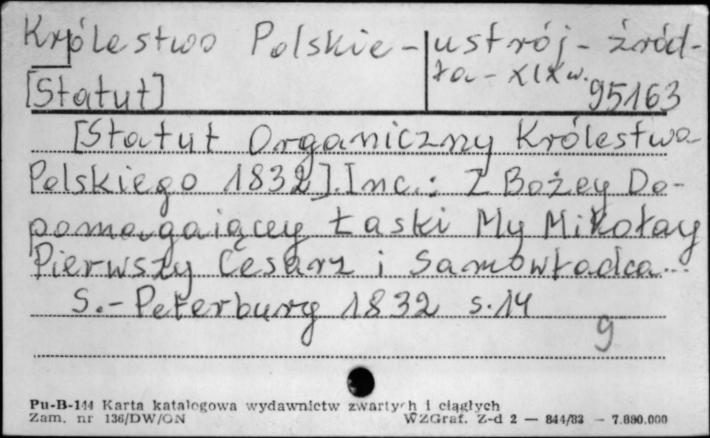 Królestwo Polskie - ustrój - źród-
ła - XIX w.
[Statut]
95163
[Statut Organiczny Królestwa
Polskiego 1832]. Inc.: Z Bożey Do-
pomagaiącey Łaski My Mikołay
Pierwszy Cesarz i Samowładca...
S.-Peterburg 1832 s. 14
9
Pu-B-144 Karta katalogowa wydawnictw zwartych i ciągłych
Zam. nr 136/DW/ON WZGraf. Z-d 2 — 844/83 — 7.880.000